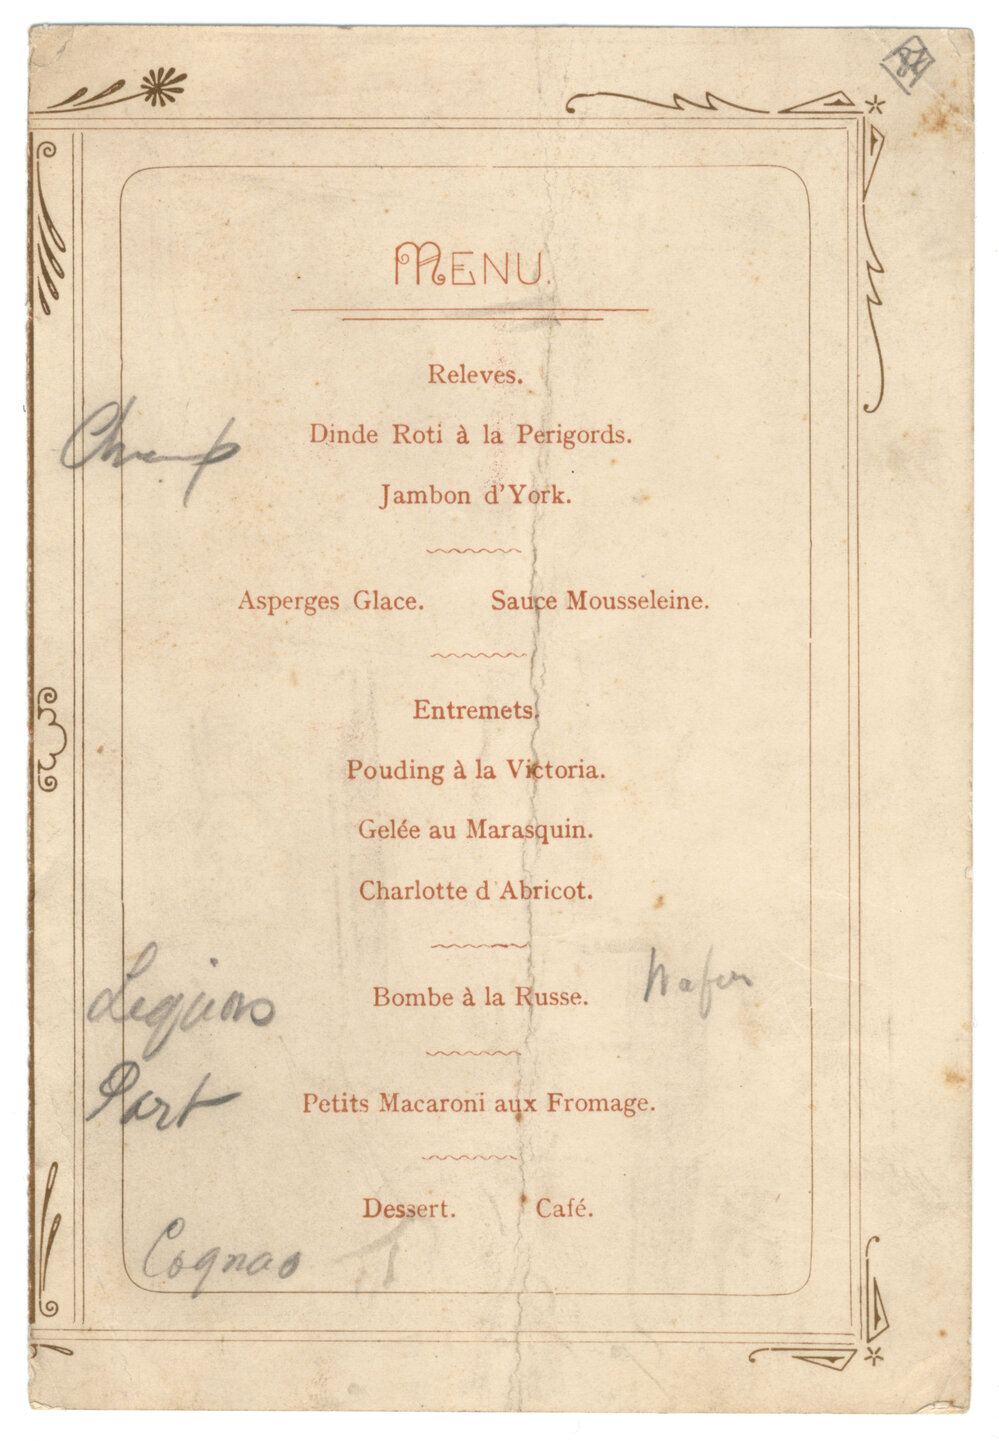 84
MENU.
Releves.
Champ
Dinde Roti à la Perigords.
Jambon d'York.
Asperges Glace. Sauce Mousseleine.
Entremets.
Pouding à la Victoria.
Gelée au Marasquin.
Charlotte d'Abricot.
Liquors
Bombe à la Russe. Wafers
Port
Petits Macaroni aux Fromage.
Dessert. Café.
Cognac